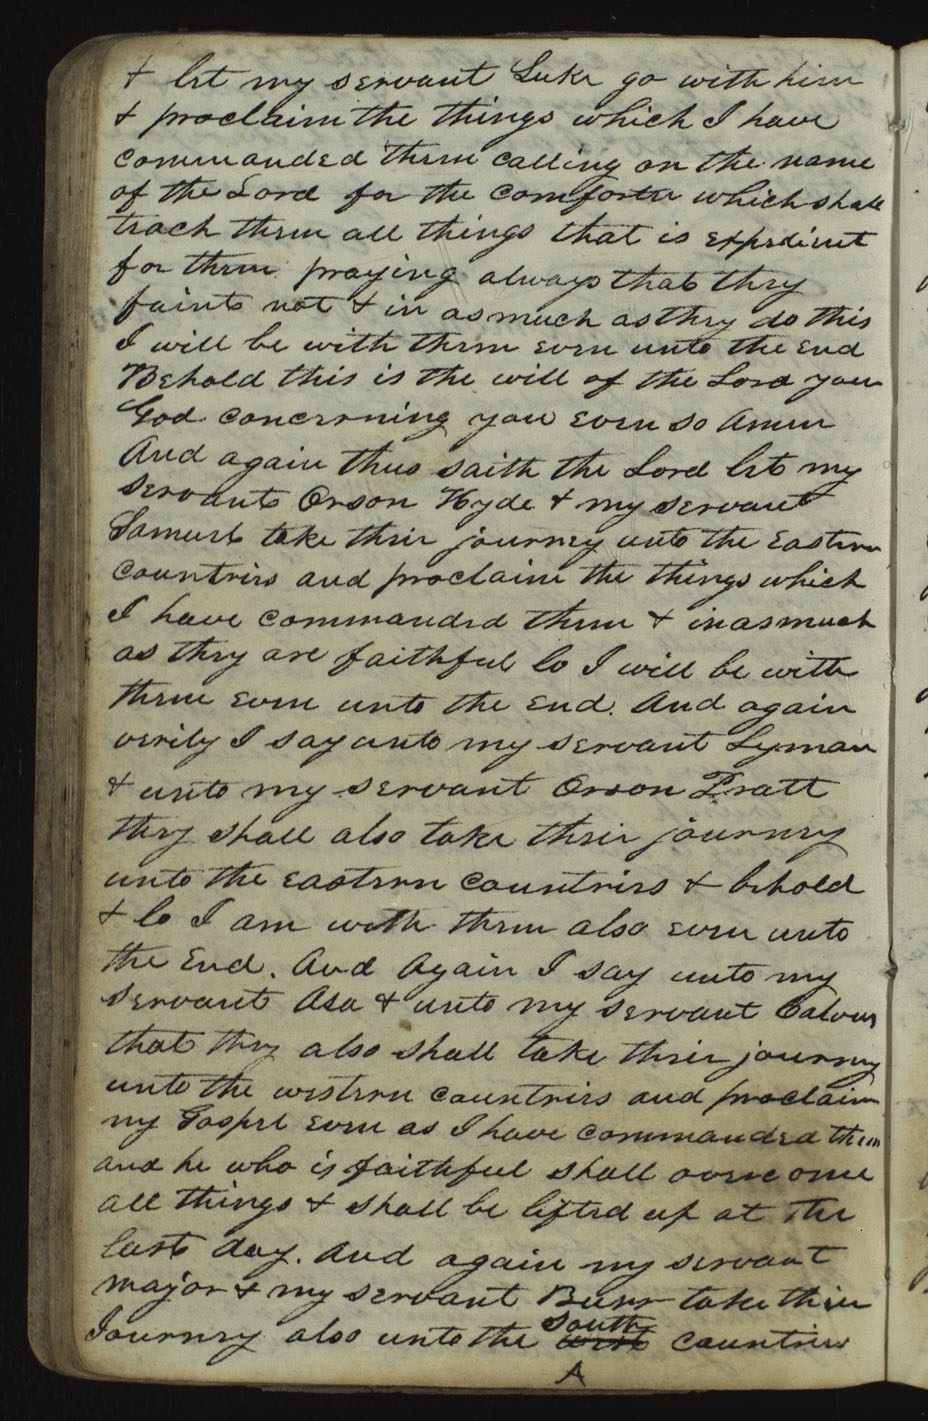 & let my servant Luke go with him
& proclaim the things which I have
commanded them calling on the name
of the Lord for the comforter which shall
teach them all things that is expedient
for them praying always that they
faint not & in as much as they do this
I will be with them even unto the end
Behold this is the will of the Lord your
God concerning you even so Amen
And again thus saith the Lord let my
servant Orson Hyde & my servant
Samuel take their journey unto the eastern
countries and proclaim the things which
I have commanded them & inasmuch
as they are faithful lo I will be with
them even unto the end. And again
verily I say unto my servant Lyman
& unto my servant Orson Pratt
they shall also take their journey
unto the eastern countries & behold
& lo I am with them also even unto
the End. And Again I say unto my
servant Asa & unto my servant Calves
that they also shall take their journey
unto the western countries and proclaim
my Gospel even as I have commanded them
and he who is faithful shall overcome
all things & shall be lifted up at the
last day. And again my servant
major & my servant Burr take their
Journey also unto the south west countries
A